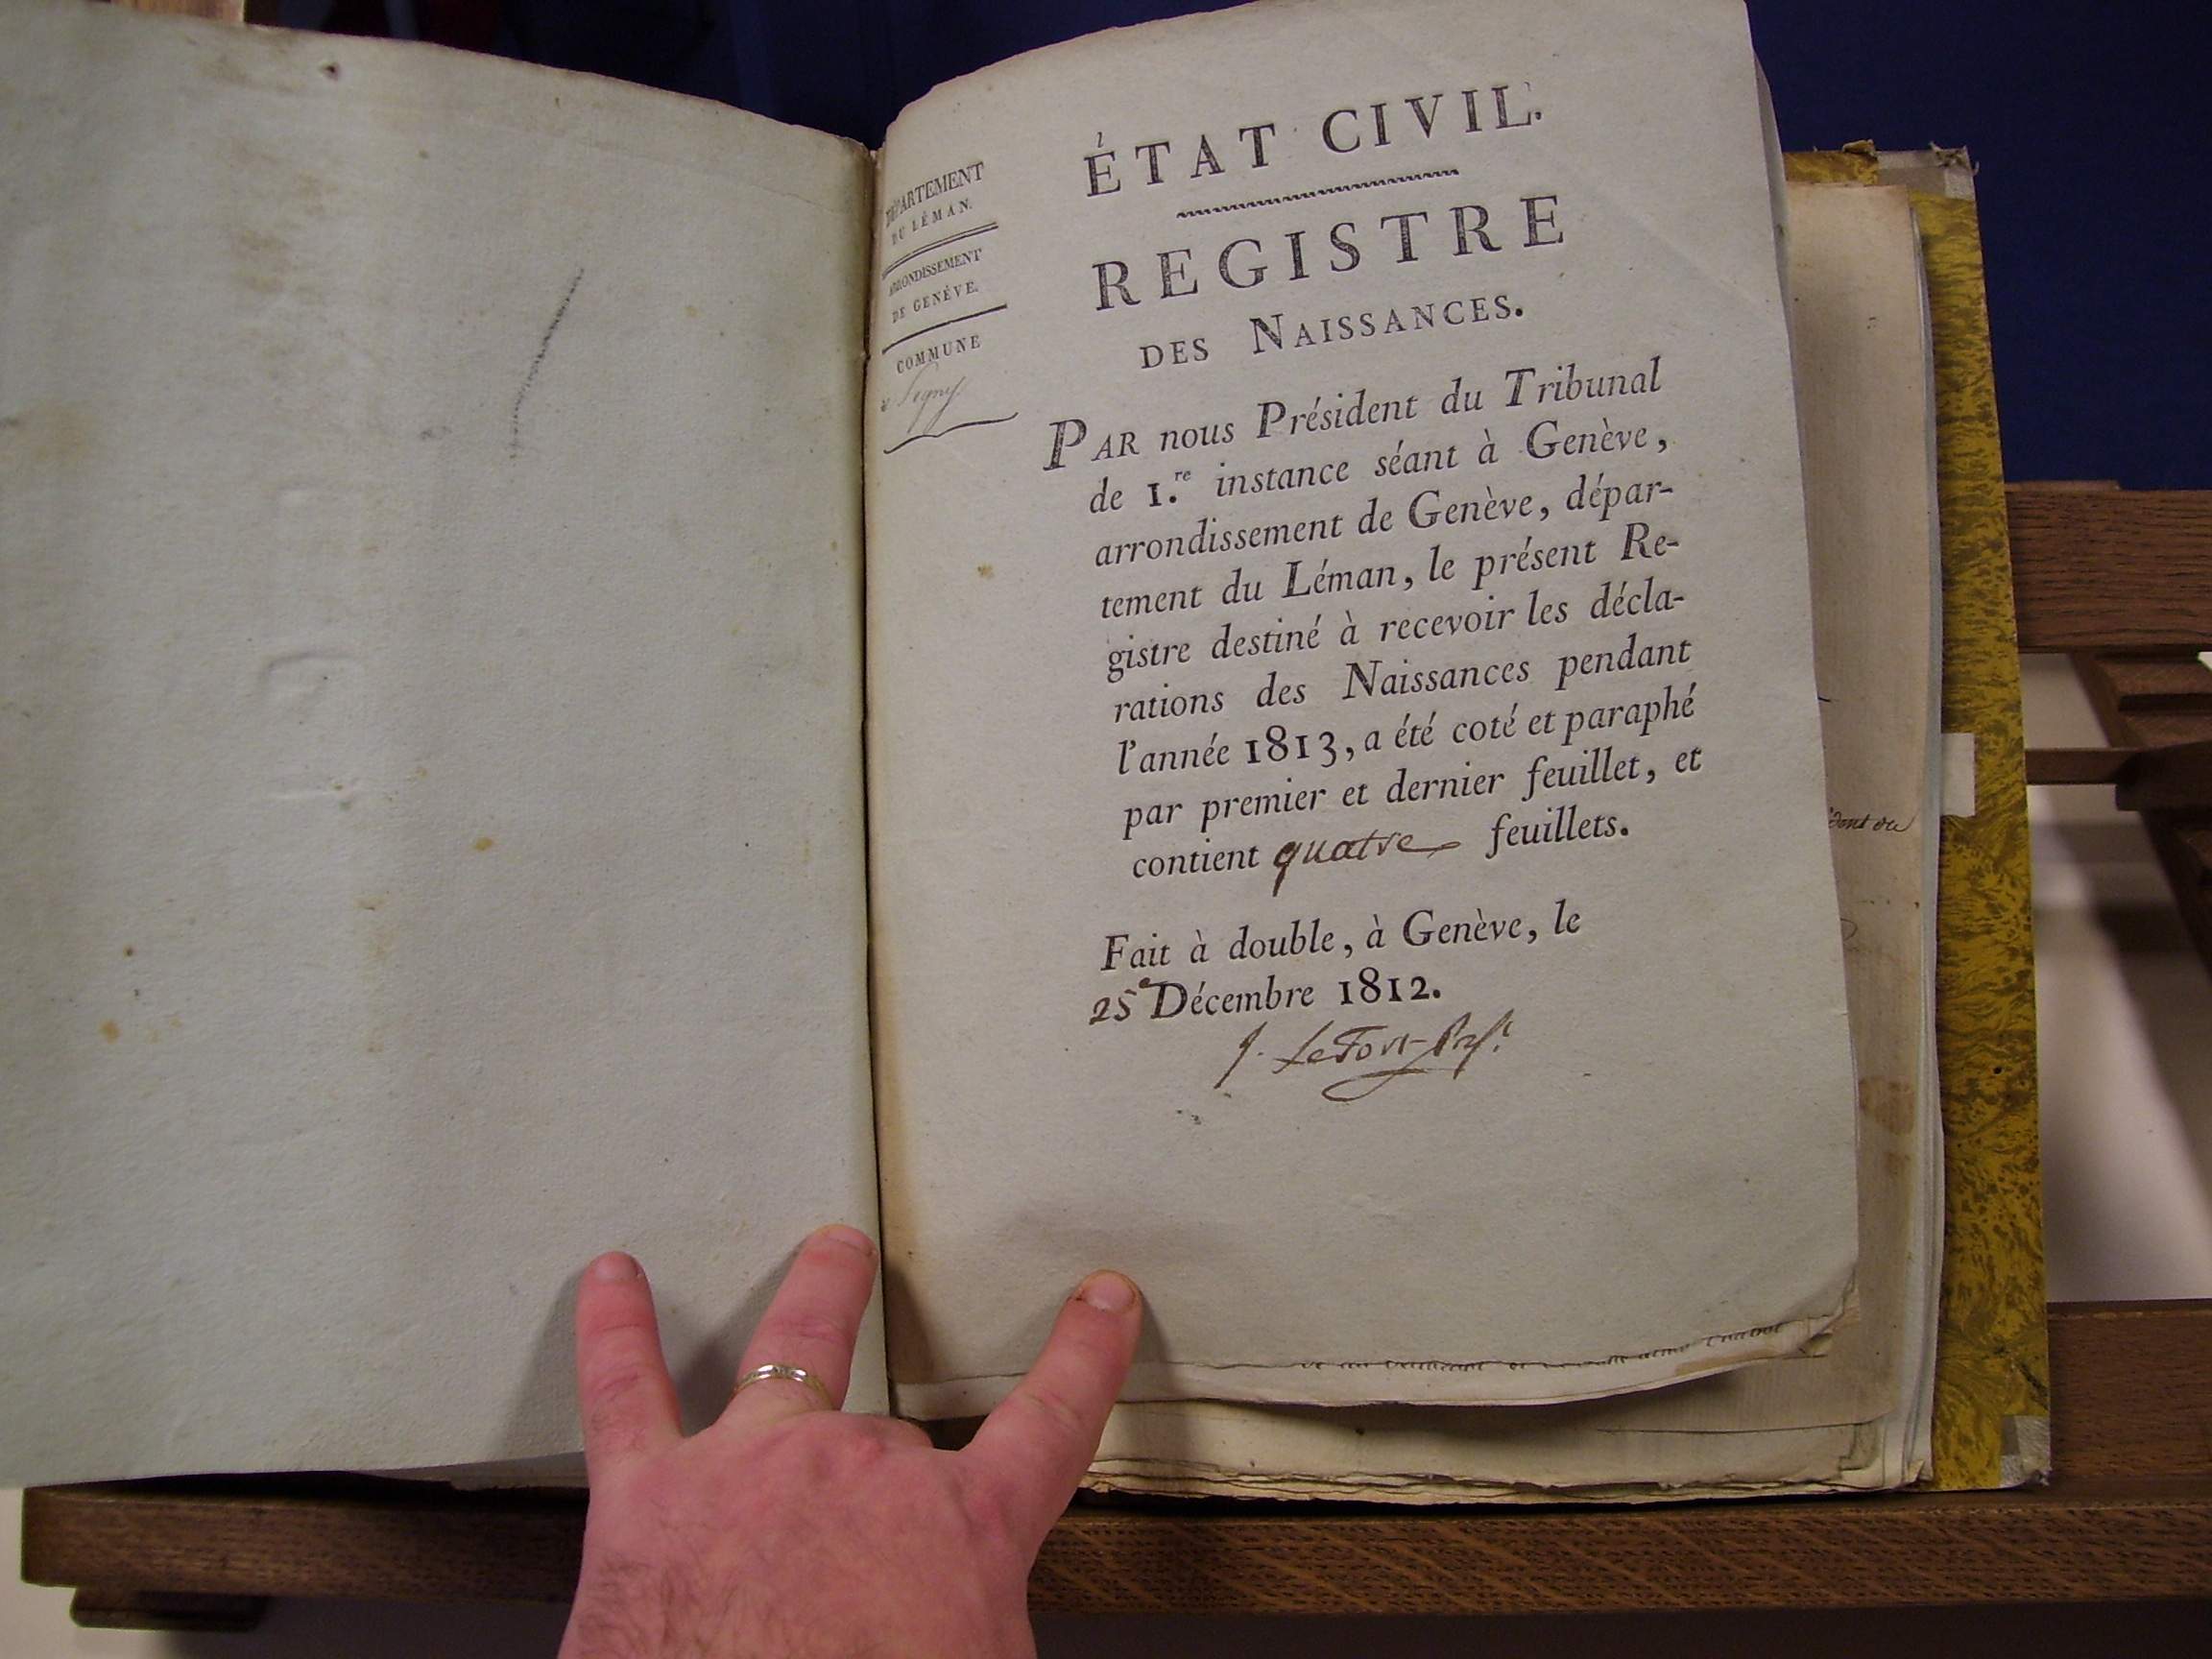 DÉPARTEMENT
DU LÉMAN.
ARRONDISSEMENT
DE GENÈVE.
COMMUNE
Segny
ÉTAT CIVIL.
REGISTRE
DES NAISSANCES.
PAR nous Président du Tribunal
de 1.re instance séant à Genève,
arrondissement de Genève, dépar-
tement du Léman, le présent Re-
gistre destiné à recevoir les décla-
rations des Naissances pendant
l'année 1813, a été coté et paraphé
par premier et dernier feuillet, et
contient quatre feuillets.
Fait à double, à Genève, le
25e Décembre 1812.
J. LeFort